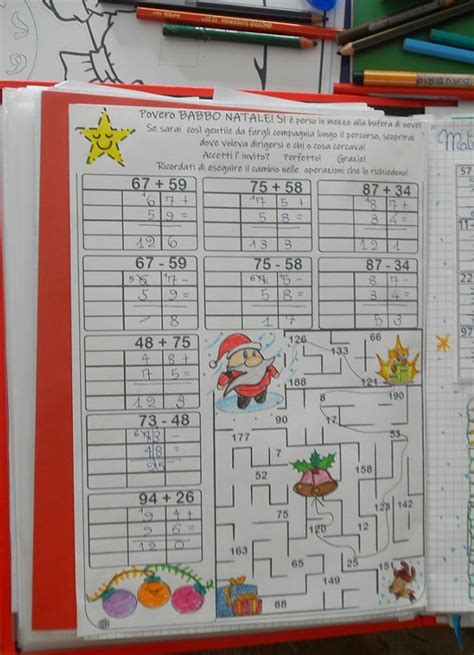 Povero BABBO NATALE! SI è perso in mezzo alla bufera di neve!
Se sarai così gentile da fargli compagnia lungo il percorso, scoprirai
dove voleva dirigersi e chi o cosa cercava!
Accetti l'invito? Perfetto! Grazie!
Ricordati di eseguire il cambio nelle operazioni che lo richiedono!
67 + 59
75 + 58
87 + 34
6 7 +
5 9 =
1 2 6
7 5 +
5 8 =
1 3 3
8 7 +
3 4 =
1 2 1
67 - 59
75 - 58
87 - 34
5 9 =
8
5 8 =
1 7
8 7 -
3 4 =
5 3
48 + 75
4 8 +
7 5 =
1 2 3
73 - 48
4 8 =
2 5
94 + 26
9 4 +
2 6 =
1 2 0
126
133
66
188
121
8
190
90
17
53
177
7
52
158
75
128
142
120
12
163
65
25
151
149
88
57
11
22
97